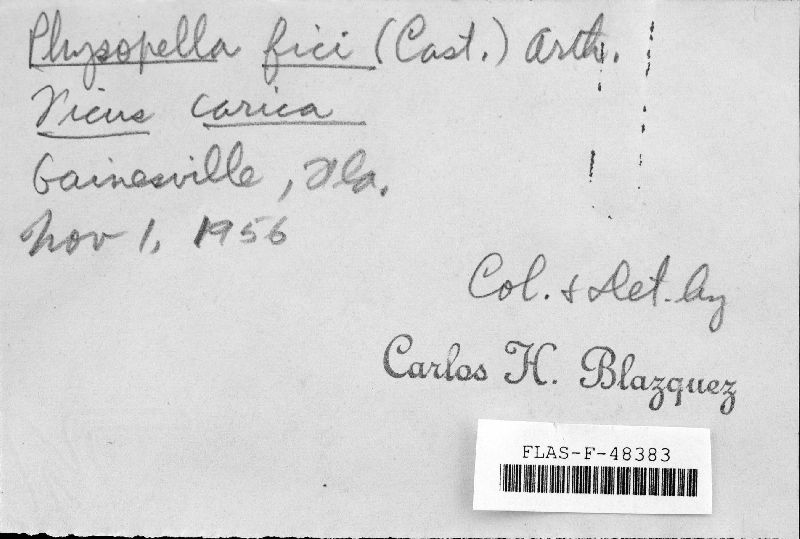 Physopella fici (Cast.) Arth.
Ficus carica
Gainesville, Fla.
Nov 1, 1956
Col. & Det. by
Carlos H. Blazquez
FLAS-F-48383